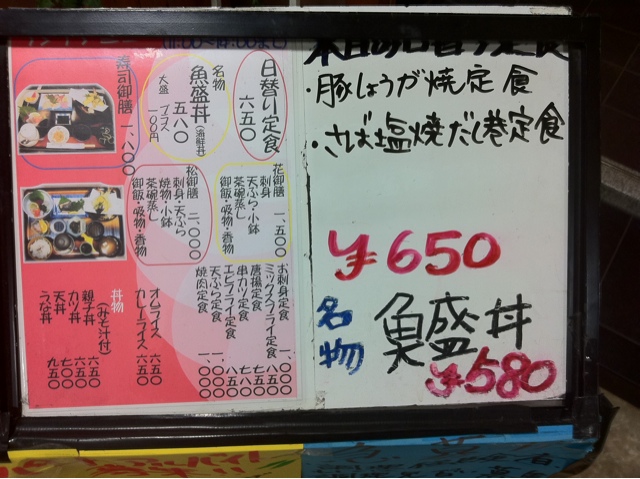 日替り定食
六五〇
名物
魚盛丼(海鮮丼)
五八〇
大盛 プラス一〇〇円
寿司御膳 一、八〇〇
花御膳 一、五〇〇
刺身
天ぷら・小鉢
茶碗蒸し
御飯・吸物・香物
松御膳 二、〇〇〇
刺身・天ぷら
焼物・小鉢
茶碗蒸し
御飯・吸物・香物
お刺身定食 一、〇〇〇
ミックスフライ定食 八五〇
唐揚定食 七五〇
串カツ定食 七八〇
エビフライ定食 八五〇
天ぷら定食 一、〇〇〇
焼肉定食 一、〇〇〇
オムライス 六五〇
カレーライス 六五〇
丼物
(みそ汁付)
親子丼 六五〇
カツ丼 七〇〇
天丼 八五〇
うな丼 九五〇
本日の日替り定食
・豚しょうが焼定食
・さば塩焼だし巻定食
¥650
名物
魚盛丼
¥580